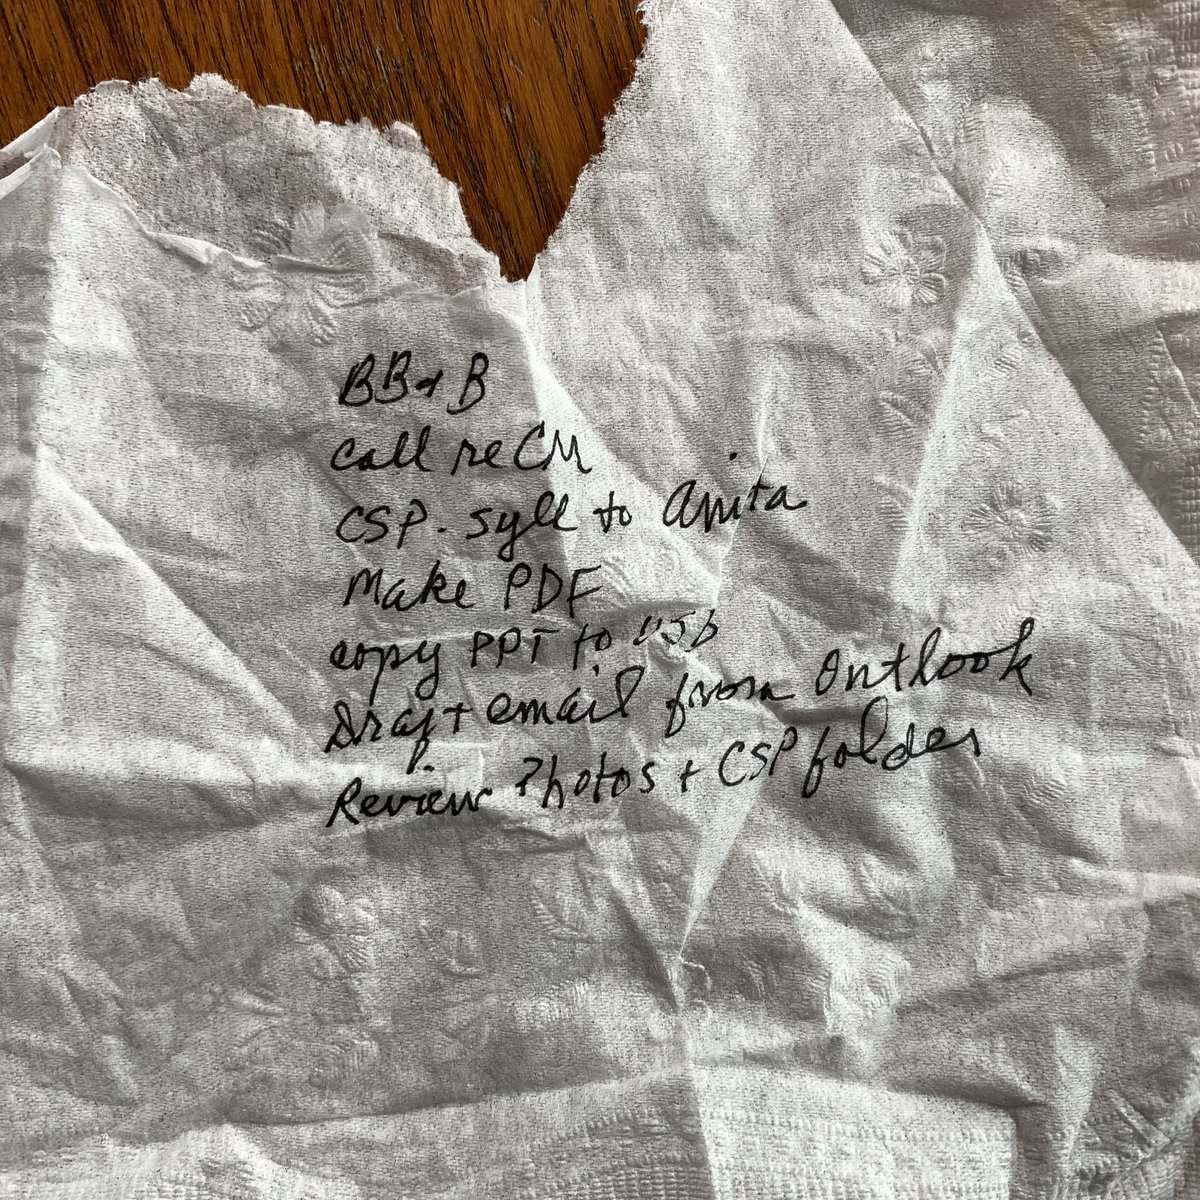 BB+B
Call re CM
CSP. syll to Anita
Make PDF
copy PPT to USB
Draft email from Outlook
Review Photos + CSP folder